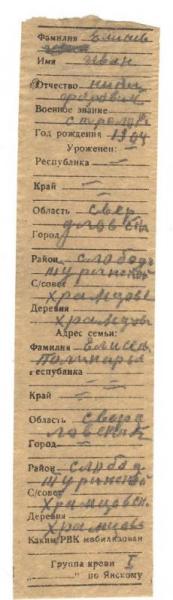 Фамилия Елисеев
Имя Иван
Отчество Никифорович
Военное звание
стрелок
Год рождения 1904
Уроженец: —
Республика —
Край —
Область Свер
дловская
Город
Район Слободо
Туринский
С/совет
Храмцовс
Деревня
Храмцово
Адрес семьи:
Фамилия Елисеев
республика —
Край —
Область Сверд
ловская
Город —
Район Слобод
Туринский
С/совет
Храмцовск
Деревня
Храмцово
Каким РВК мобилизован
Группа крови I
„ " по Янскому